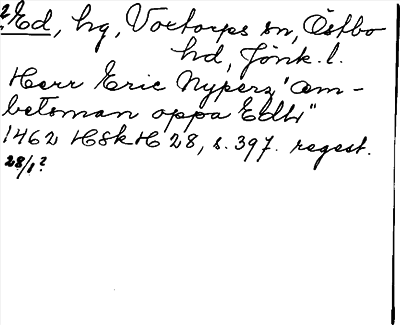 ? Ed, hg, Voxtorps sn, Östbo
hd, Jönk. l.
Herr Eric Nyperz "æm-
betsman oppa Edhr"
1462 HSkH 28, s. 397. regest.
28/1?